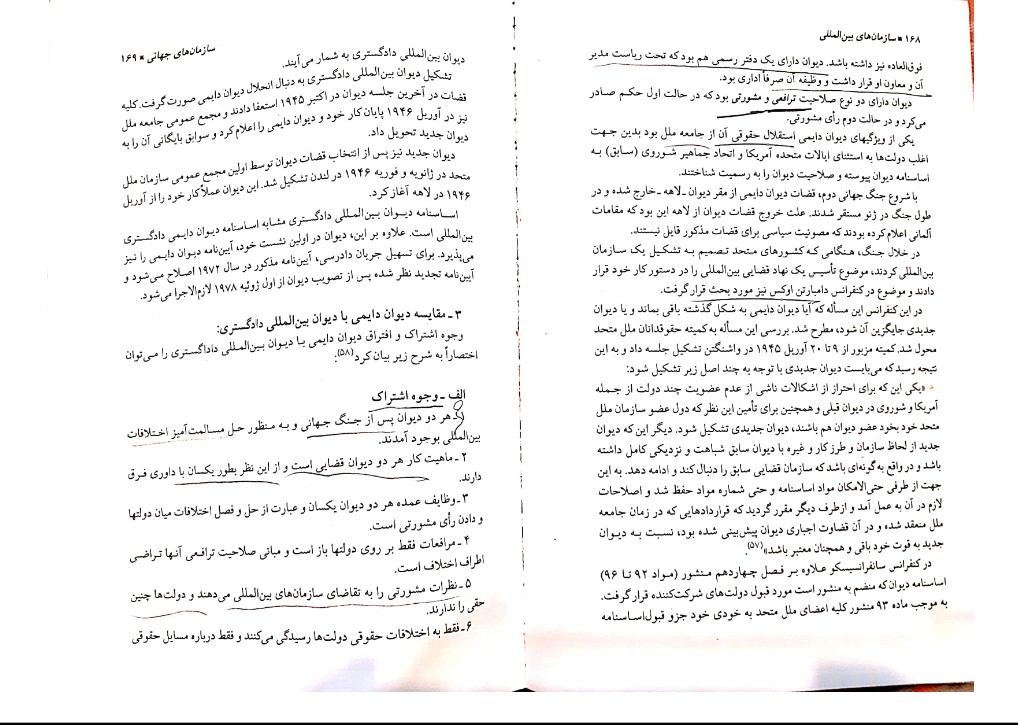 ۱۶۸ ■ سازمان‌های بین‌المللی
فوق‌العاده نیز داشته باشد. دیوان دارای یک دفتر رسمی هم بود که تحت ریاست مدیر
آن و معاون او قرار داشت و وظیفه آن صرفاً اداری بود.
دیوان دارای دو نوع صلاحیت ترافعی و مشورتی بود که در حالت اول حکم صادر
می‌کرد و در حالت دوم رأی مشورتی.
یکی از ویژگیهای دیوان دایمی استقلال حقوقی آن از جامعه ملل بود بدین جهت
اغلب دولت‌ها به استثنای ایالات متحده آمریکا و اتحاد جماهیر شوروی (سابق) به
اساسنامه دیوان پیوسته و صلاحیت دیوان را به رسمیت شناختند.
با شروع جنگ جهانی دوم، قضات دیوان دایمی از مقر دیوان ـ لاهه ـ خارج شده و در
طول جنگ در ژنو مستقر شدند. علت خروج قضات دیوان از لاهه این بود که مقامات
آلمانی اعلام کرده بودند که مصونیت سیاسی برای قضات مذکور قایل نیستند.
در خلال جنگ، هنگامی که کشورهای متحد تصمیم به تشکیل یک سازمان
بین‌المللی کردند، موضوع تأسیس یک نهاد قضایی بین‌المللی را در دستور کار خود قرار
دادند و موضوع در کنفرانس دامبارتن اوکس نیز مورد بحث قرار گرفت.
در این کنفرانس این مسأله که آیا دیوان دایمی به شکل گذشته باقی بماند و یا دیوان
جدیدی جایگزین آن شود، مطرح شد. بررسی این مسأله به کمیته حقوقدانان ملل متحد
محول شد. کمیته مزبور از ۹ تا ۲۰ آوریل ۱۹۴۵ در واشنگتن تشکیل جلسه داد و به این
نتیجه رسید که می‌بایست دیوان جدیدی با توجه به چند اصل زیر تشکیل شود:
«یکی این که برای احتراز از اشکالات ناشی از عدم عضویت چند دولت از جمله
آمریکا و شوروی در دیوان قبلی و همچنین برای تأمین این نظر که دول عضو سازمان ملل
متحد خود بخود عضو دیوان هم باشند، دیوان جدیدی تشکیل شود. دیگر این که دیوان
جدید از لحاظ سازمان و طرز کار و غیره با دیوان سابق شباهت و نزدیکی کامل داشته
باشد و در واقع به گونه‌ای باشد که سازمان قضایی سابق را دنبال کند و ادامه دهد. به این
جهت از طرفی حتی‌الامکان مواد اساسنامه و حتی شماره مواد حفظ شد و اصلاحات
لازم در آن به عمل آمد و ازطرف دیگر مقرر گردید که قراردادهایی که در زمان جامعه
ملل منعقد شده و در آن قضاوت اجباری دیوان پیش‌بینی شده بود، نسبت به دیوان
جدید به قوت خود باقی و همچنان معتبر باشد»(۵۷).
در کنفرانس سانفرانسیسکو علاوه بر فصل چهاردهم منشور (مواد ۹۲ تا ۹۶)
اساسنامه دیوان که منضم به منشور است مورد قبول دولت‌های شرکت‌کننده قرار گرفت.
به موجب ماده ۹۳ منشور کلیه اعضای ملل متحد به خودی خود جزو قبول اساسنامه
سازمان‌های جهانی ■ ۱۶۹
دیوان بین‌المللی دادگستری به شمار می‌آیند.
تشکیل دیوان بین‌المللی دادگستری به دنبال انحلال دیوان دایمی صورت گرفت. کلیه
قضات در آخرین جلسه دیوان در اکتبر ۱۹۴۵ استعفا دادند و مجمع عمومی جامعه ملل
نیز در آوریل ۱۹۴۶ پایان کار خود و دیوان دایمی را اعلام کرد و سوابق بایگانی آن را به
دیوان جدید تحویل داد.
دیوان جدید نیز پس از انتخاب قضات دیوان توسط اولین مجمع عمومی سازمان ملل
متحد در ژانویه و فوریه ۱۹۴۶ در لندن تشکیل شد. این دیوان عملاً کار خود را از آوریل
۱۹۴۶ در لاهه آغاز کرد.
اساسنامه دیوان بین‌المللی دادگستری مشابه اساسنامه دیوان دایمی دادگستری
بین‌المللی است. علاوه بر این، دیوان در اولین نشست خود، آیین‌نامه دیوان دایمی را نیز
می‌پذیرد. برای تسهیل جریان دادرسی، آیین‌نامه مذکور در سال ۱۹۷۲ اصلاح می‌شود و
آیین‌نامه تجدید نظر شده پس از تصویب دیوان از اول ژوئیه ۱۹۷۸ لازم‌الاجرا می‌شود.
۳ ـ مقایسه دیوان دایمی با دیوان بین‌المللی دادگستری:
وجوه اشتراک و افتراق دیوان دایمی با دیوان بین‌المللی داداگستری را می‌توان
اختصاراً به شرح زیر بیان کرد(۵۸).
الف ـ وجوه اشتراک
۱ـ هر دو دیوان پس از جنگ جهانی و به منظور حل مسالمت‌آمیز اختلافات
بین‌المللی بوجود آمدند.
۲ ـ ماهیت کار هر دو دیوان قضایی است و از این نظر بطور یکسان با داوری فرق
دارند.
۳ ـ وظایف عمده هر دو دیوان یکسان و عبارت از حل و فصل اختلافات میان دولتها
و دادن رأی مشورتی است.
۴ ـ مرافعات فقط بر روی دولتها باز است و مبانی صلاحیت ترافعی آنها تراضی
اطراف اختلاف است.
۵ ـ نظرات مشورتی را به تقاضای سازمان‌های بین‌المللی می‌دهند و دولت‌ها چنین
حقی را ندارند.
۶ ـ فقط به اختلافات حقوقی دولت‌ها رسیدگی می‌کنند و فقط درباره مسایل حقوقی